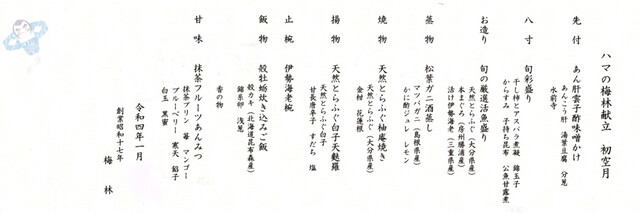 ハマの梅林献立　初空月
先付　あん肝雲子酢味噌かけ
あんこう肝　湯葉豆腐　分葱
水前寺
八寸　旬彩盛り
干し柿とアスパラ煮凝　錦玉子
からすみ　子持ち昆布　公魚甘露煮
お造り　旬の厳選活魚盛り
天然とらふぐ（大分県産）
本まぐろ（房州勝浦産）
活け伊勢海老（三重県産）
蒸物　松葉ガニ酒蒸し
マツバガニ（島根県産）
かに酢ジュレ　レモン
焼物　天然とらふぐ柚庵焼き
天然とらふぐ（大分県産）
金柑　花蓮根
揚物　天然とらふぐ白子天麩羅
天然とらふぐ白子
甘長唐辛子　すだち　塩
止椀　伊勢海老椀
飯物　殻牡蛎炊き込みご飯
殻カキ（北海道昆布森産）
錦糸卵　浅葱
香の物
甘味　抹茶フルーツあんみつ
抹茶プリン　苺　マンゴー
ブルーベリー　寒天　餡子
白玉　黒蜜
令和四年一月
創業昭和十七年
梅林